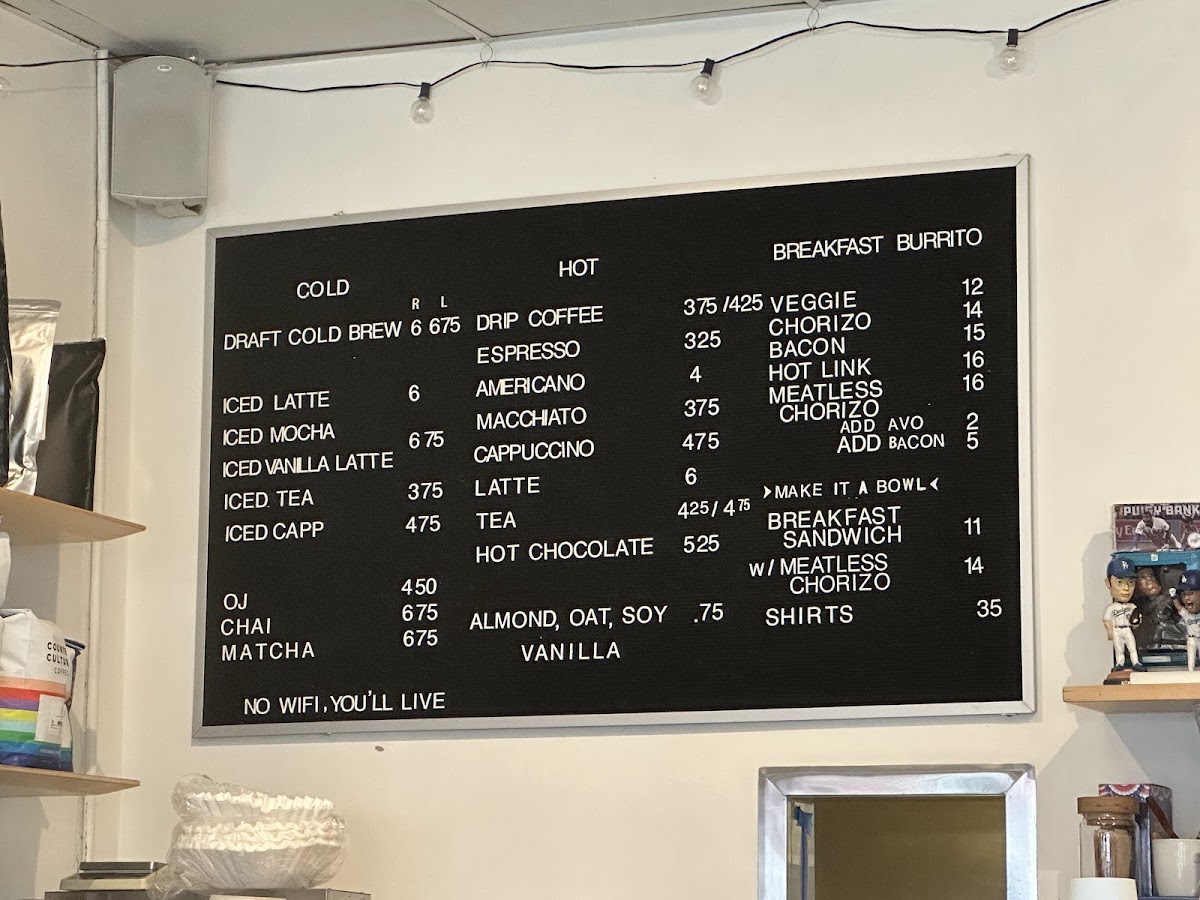 COLD
R L
DRAFT COLD BREW 6 675
ICED LATTE 6
ICED MOCHA
675
ICED VANILLA LATTE
ICED TEA 375
ICED CAPP 475
OJ 450
CHAI 675
MATCHA 675
NO WIFI, YOU'LL LIVE
HOT
DRIP COFFEE 375 /425
ESPRESSO 325
AMERICANO 4
MACCHIATO 375
CAPPUCCINO 475
LATTE 6
TEA 425/ 475
HOT CHOCOLATE 525
ALMOND, OAT, SOY .75
VANILLA
BREAKFAST BURRITO
VEGGIE 12
CHORIZO 14
BACON 15
HOT LINK 16
MEATLESS 16
CHORIZO
ADD AVO 2
ADD BACON 5
>MAKE IT A BOWL<
BREAKFAST
SANDWICH 11
W/ MEATLESS 14
CHORIZO
SHIRTS 35
COUNTER
CULTURE
COFFEE